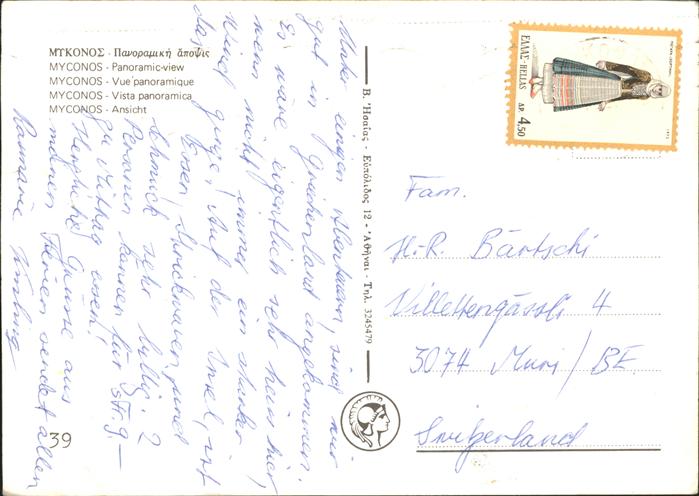 ΜΥΚΟΝΟΣ - Πανοραμική ἄποψις
MYCONOS - Panoramic-view
MYCONOS - Vue panoramique
MYCONOS - Vista panoramica
MYCONOS - Ansicht
Unter einigen Abenteuern, sind wir
gut in Griechenland angekommen.
Es wäre eigentlich sehr schön hier,
wenn nicht immer ein starker
Wind ginge! Auf der Insel, ist
das Essen, Strickwaren und
Schmuck sehr billig. 2
Personen können für SFr 9.-
zu Mittag essen!
Herzliche Grüsse aus
meinen Ferien sendet allen
39
Β. Ἠσαΐας - Εὐπόλιδος 12 - Ἀθῆναι - Τηλ. 3245479
ΕΛΛΑΣ-HELLAS
ΔΡ. 4,50
Fam.
H.R. Bärtschi
Villettengässli 4
3074 Muri / BE
Switzerland